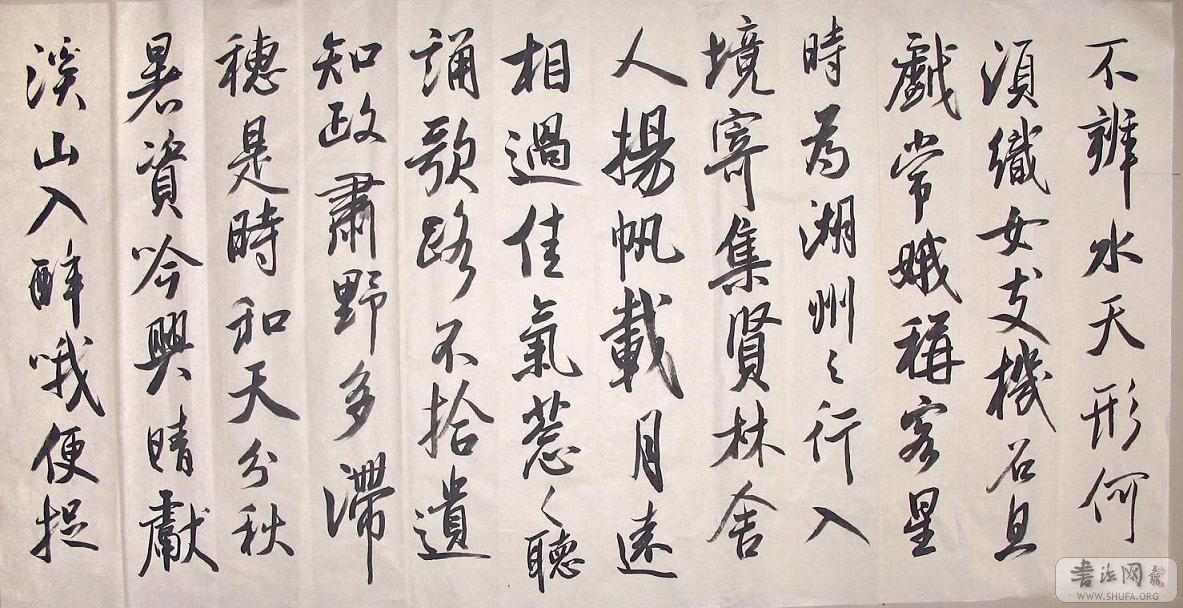 不辨水天形何
須織女支機石且
戲常娥稱客星
時為湖州之行入
境寄集賢林舍
人揚帆載月遠
相過佳氣蔥々聽
誦歌路不拾遺
知政肅野多滯
穗是時和天分秋
暑資吟興晴獻
溪山入醉哦便捉
書法网
WWW.SHUFA.ORG